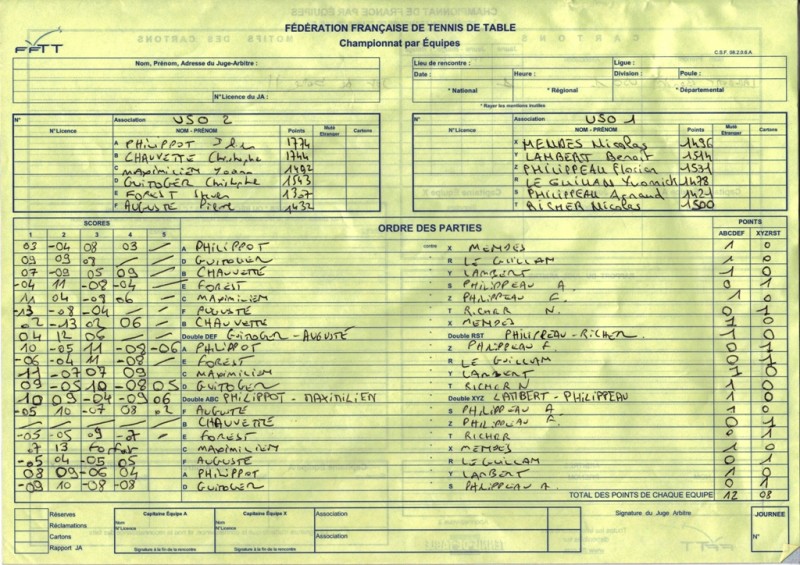 FÉDÉRATION FRANÇAISE DE TENNIS DE TABLE
Championnat par Équipes
FFTT
C.S.F. 06.2.0 6.A
Nom, Prénom, Adresse du Juge-Arbitre :
N° Licence du JA :
Lieu de rencontre : Ligue :
Date : Heure : Division : Poule :
* National * Régional * Départemental
* Rayer les mentions inutiles
N° Association USO 2
N° Licence NOM - PRÉNOM Points Muté Etranger Cartons
A PHILIPPOT 1774
B CHAUVETTE Christophe 1744
C MAXIMILIEN Yoann 1492
D GUITOGER Christophe 1543
E FOREST 1307
F AUGUSTE Pierre 1432
N° Association USO 1
N° Licence NOM - PRÉNOM Points Muté Etranger Cartons
X MENDES Nicolas 1496
Y LAMBERT Benoit 1514
Z PHILIPPEAU Florian 1531
R LE GUILLAN Yvonnick 1478
S PHILIPPEAU Arnaud 1421
T RICHER Nicolas 1500
SCORES ORDRE DES PARTIES POINTS
1 2 3 4 5 ABCDEF XYZRST
03 -04 08 03 A PHILIPPOT contre X MENDES 1 0
09 09 08 D GUITOGER " R LE GUILLAN 1 0
07 -09 05 09 B CHAUVETTE " Y LAMBERT 1 0
-04 11 -08 -04 E FOREST " S PHILIPPEAU A. 0 1
11 04 -09 06 C MAXIMILIEN " Z PHILIPPEAU F. 1 0
-13 -08 -04 F AUGUSTE " T RICHER N. 0 1
02 -13 02 06 B CHAUVETTE " X MENDES 1 0
04 12 06 Double DEF GUITOGER - AUGUSTE " Double RST PHILIPPEAU - RICHER 1 0
10 -05 11 -08 -06 A PHILIPPOT " Z PHILIPPEAU F. 0 1
-06 -04 11 -08 E FOREST " R LE GUILLAN 0 1
-11 -07 07 09 C MAXIMILIEN " Y LAMBERT 1 0
09 -05 10 -08 05 D GUITOGER " T RICHER N 1 0
-10 09 -04 -09 06 Double ABC PHILIPPOT - MAXIMILIEN " Double XYZ LAMBERT - PHILIPPEAU 1 0
-05 10 -07 08 02 F AUGUSTE " S PHILIPPEAU A. 1 0
B CHAUVETTE " Z PHILIPPEAU F. 0 1
-05 -05 09 -7 E FOREST " T RICHER 0 1
7 13 Forfait C MAXIMILIEN " X MENDES 1 0
-05 04 -05 05 F AUGUSTE " R LE GUILLAN 0 1
08 09 -06 04 A PHILIPPOT " Y LAMBERT 1 0
-09 10 -08 -08 D GUITOGER " S PHILIPPEAU A. 0 1
TOTAL DES POINTS DE CHAQUE EQUIPE 12 08
Réserves
Réclamations
Cartons
Rapport JA
Capitaine Équipe A
Nom
N°Licence
Signature à la fin de la rencontre
Capitaine Équipe X
Nom
N°Licence
Signature à la fin de la rencontre
Association
Association
Signature du Juge Arbitre
JOURNEE
N°